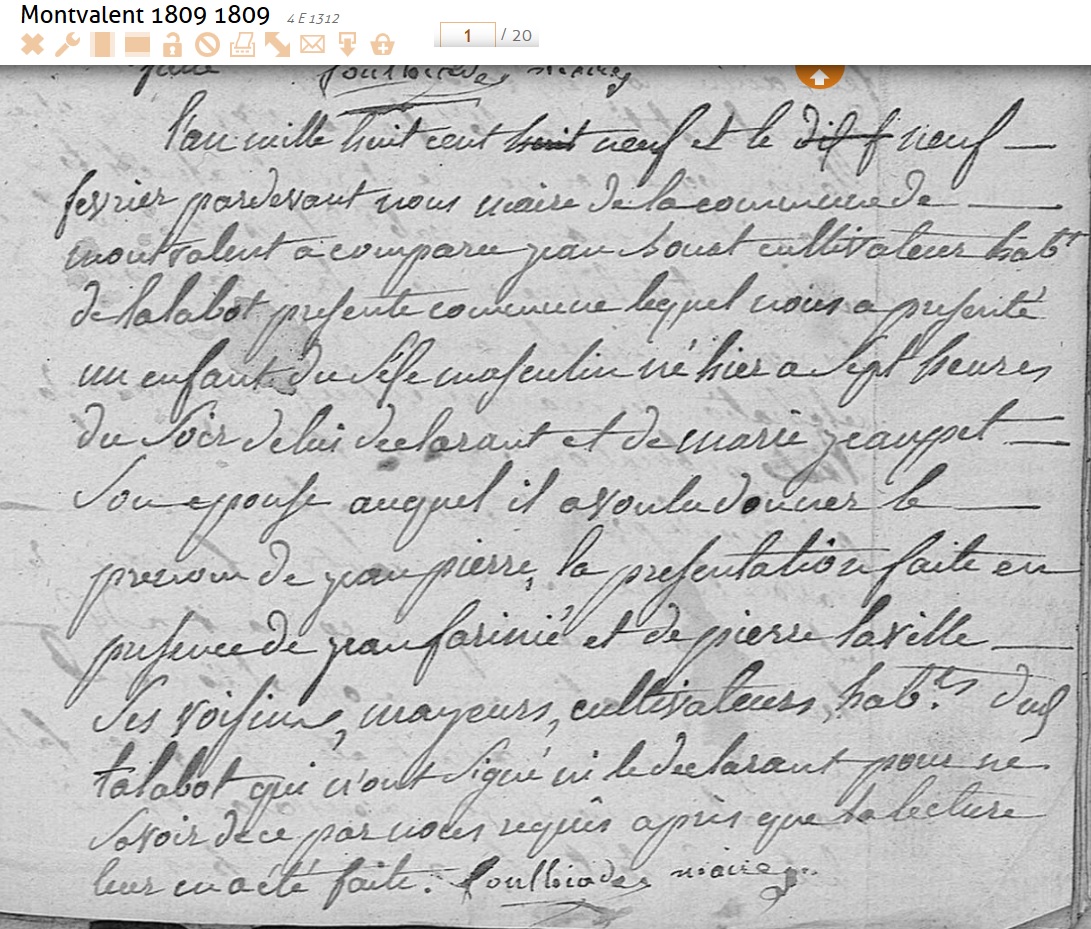 Montvalent 1809 1809 4 E 1312
1 / 20
maire
l'an mille huit cent huit neuf et le dix neuf
fevrier pardevant nous maire de la commune de
montvalent a comparu jean bouat cultivateur habt
de talabot presente commune lequel nous a presenté
un enfant du sexe masculin né hier a sept heures
du soir de lui declarant et de marie jeanpet
son epouse auquel il a voulu donner le
prenom de jean pierre, la presentation faite en
presence de jean farinié et de pierre laville
ses voisins, mayeurs, cultivateurs, habts dud
talabot qui n'ont signé ni le declarant pour ne
savoir de ce par nous requis après que la lecture
leur en a eté faite. foulhiades maire